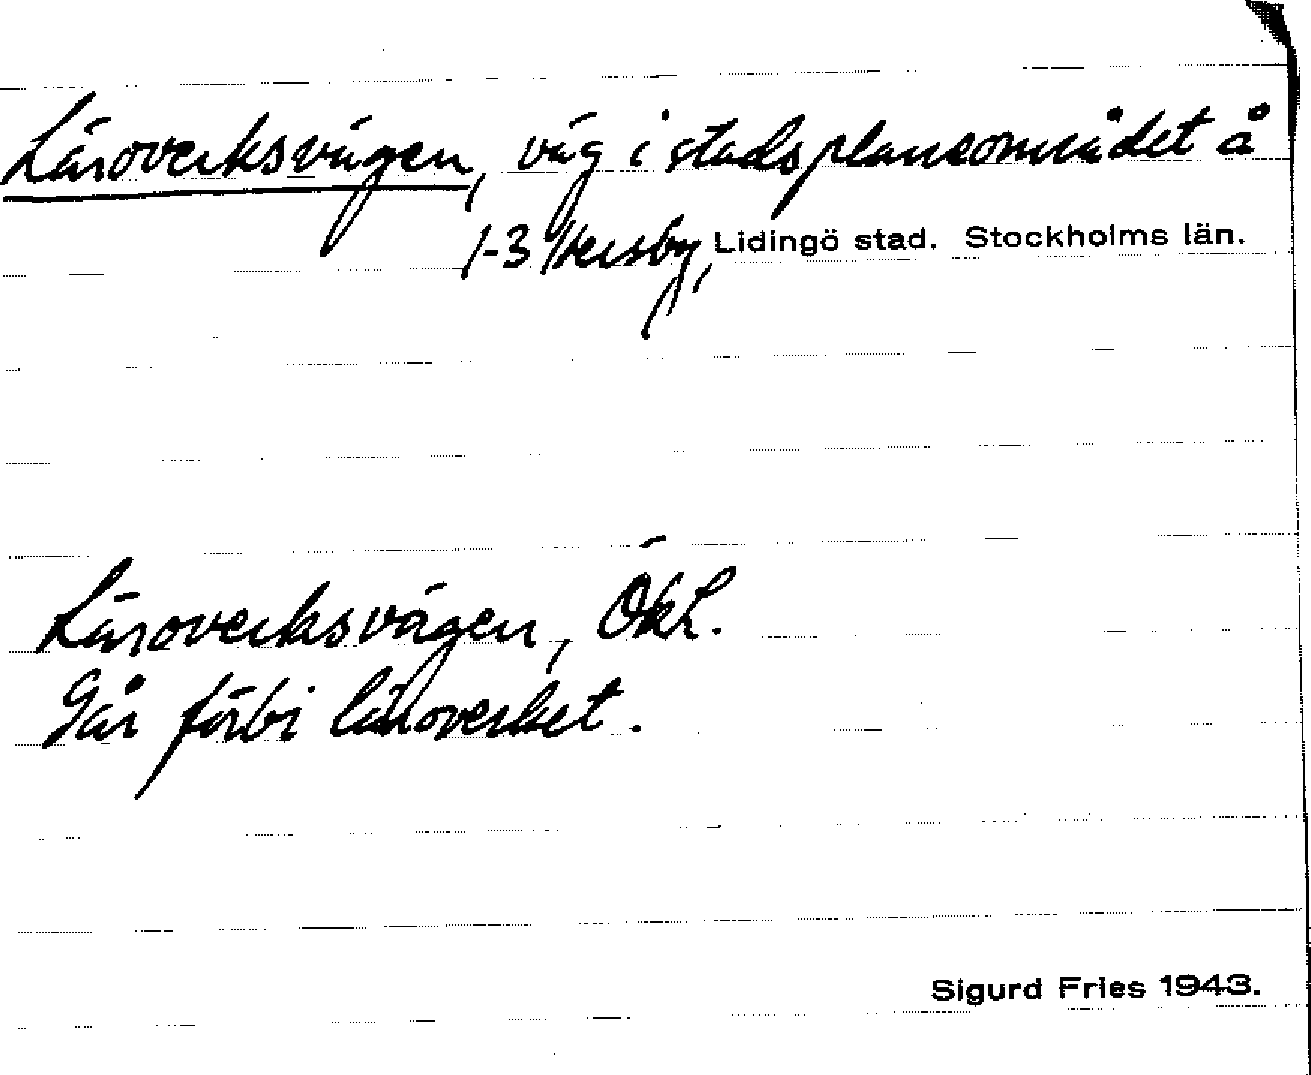 Läroverksvägen, väg i stadsplaneområdet å
1-3 Hersby, Lidingö stad. Stockholms län.
Läroverksvägen, ÖkL.
Går förbi läroverket.
Sigurd Fries 1943.